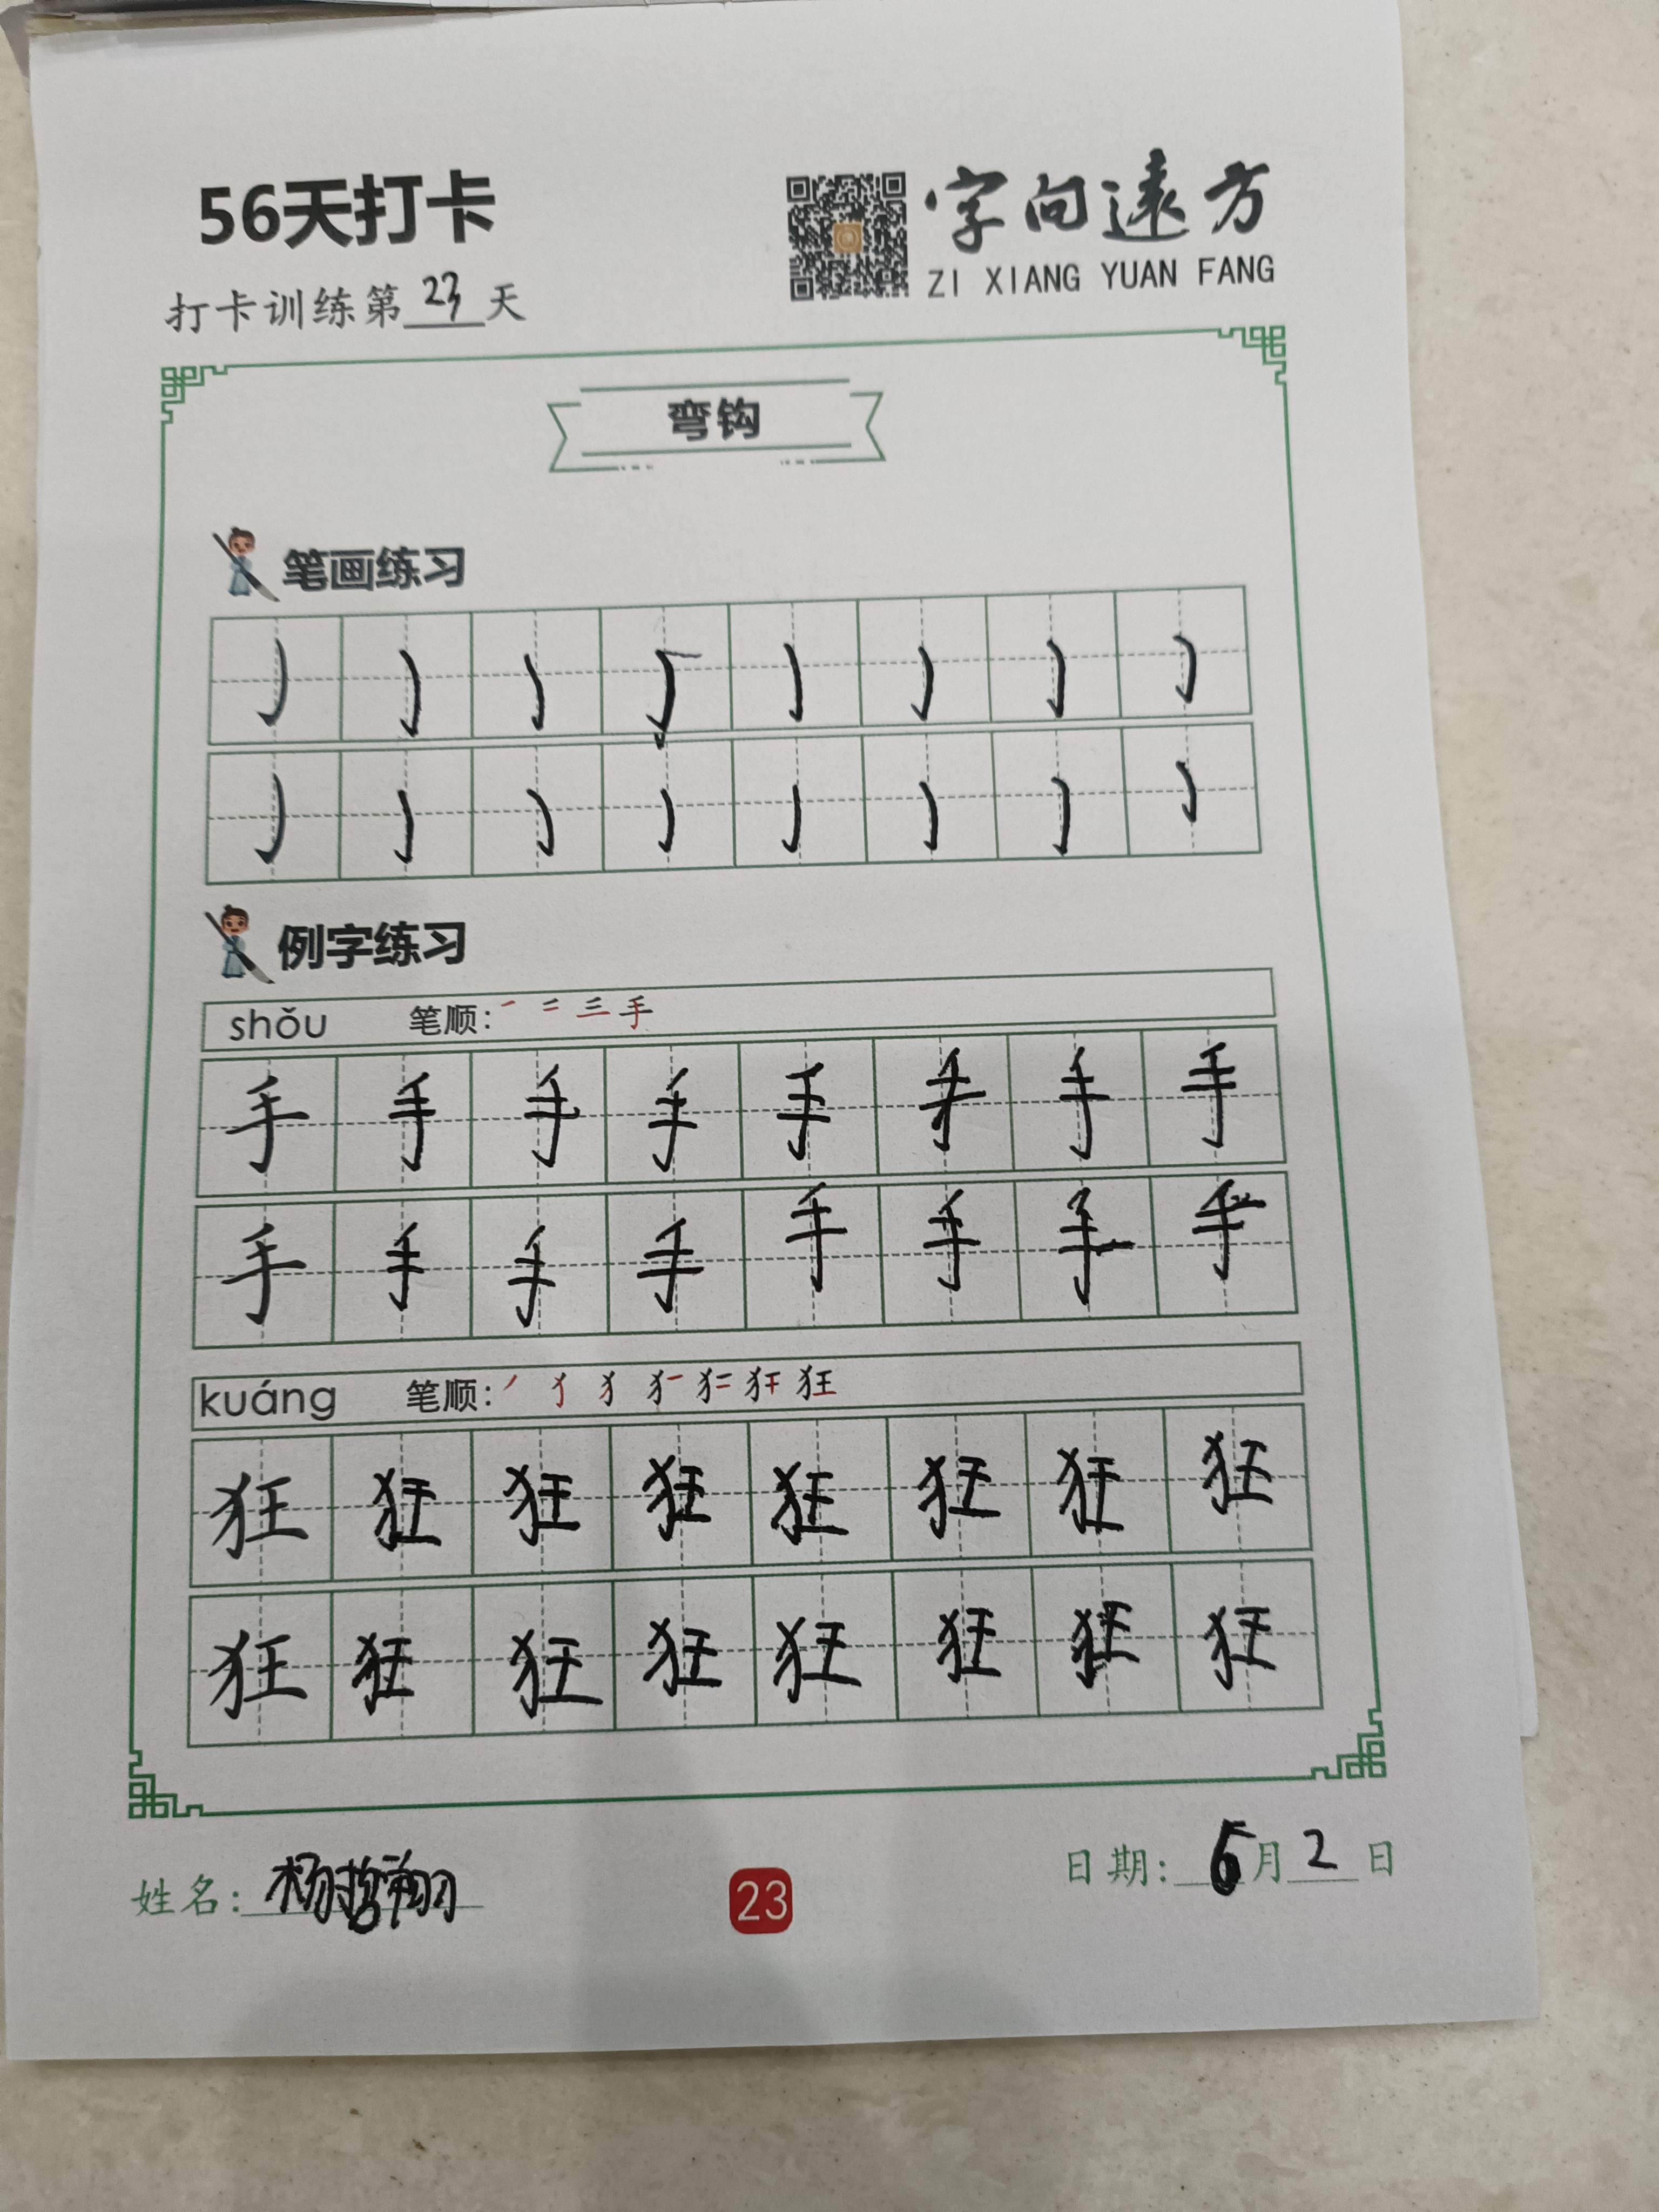 56天打卡
字向遠方
ZI XIANG YUAN FANG
打卡训练第23天
弯钩
笔画练习
例字练习
shǒu 笔顺: 一 二 三 手
手 手 手 手 手 手 手 手
手 手 手 手 手 手 手 手
kuáng 笔顺: 狂
狂 狂 狂 狂 狂 狂 狂 狂
狂 狂 狂 狂 狂 狂 狂 狂
姓名: 杨哲翔
23
日期: 6月2日